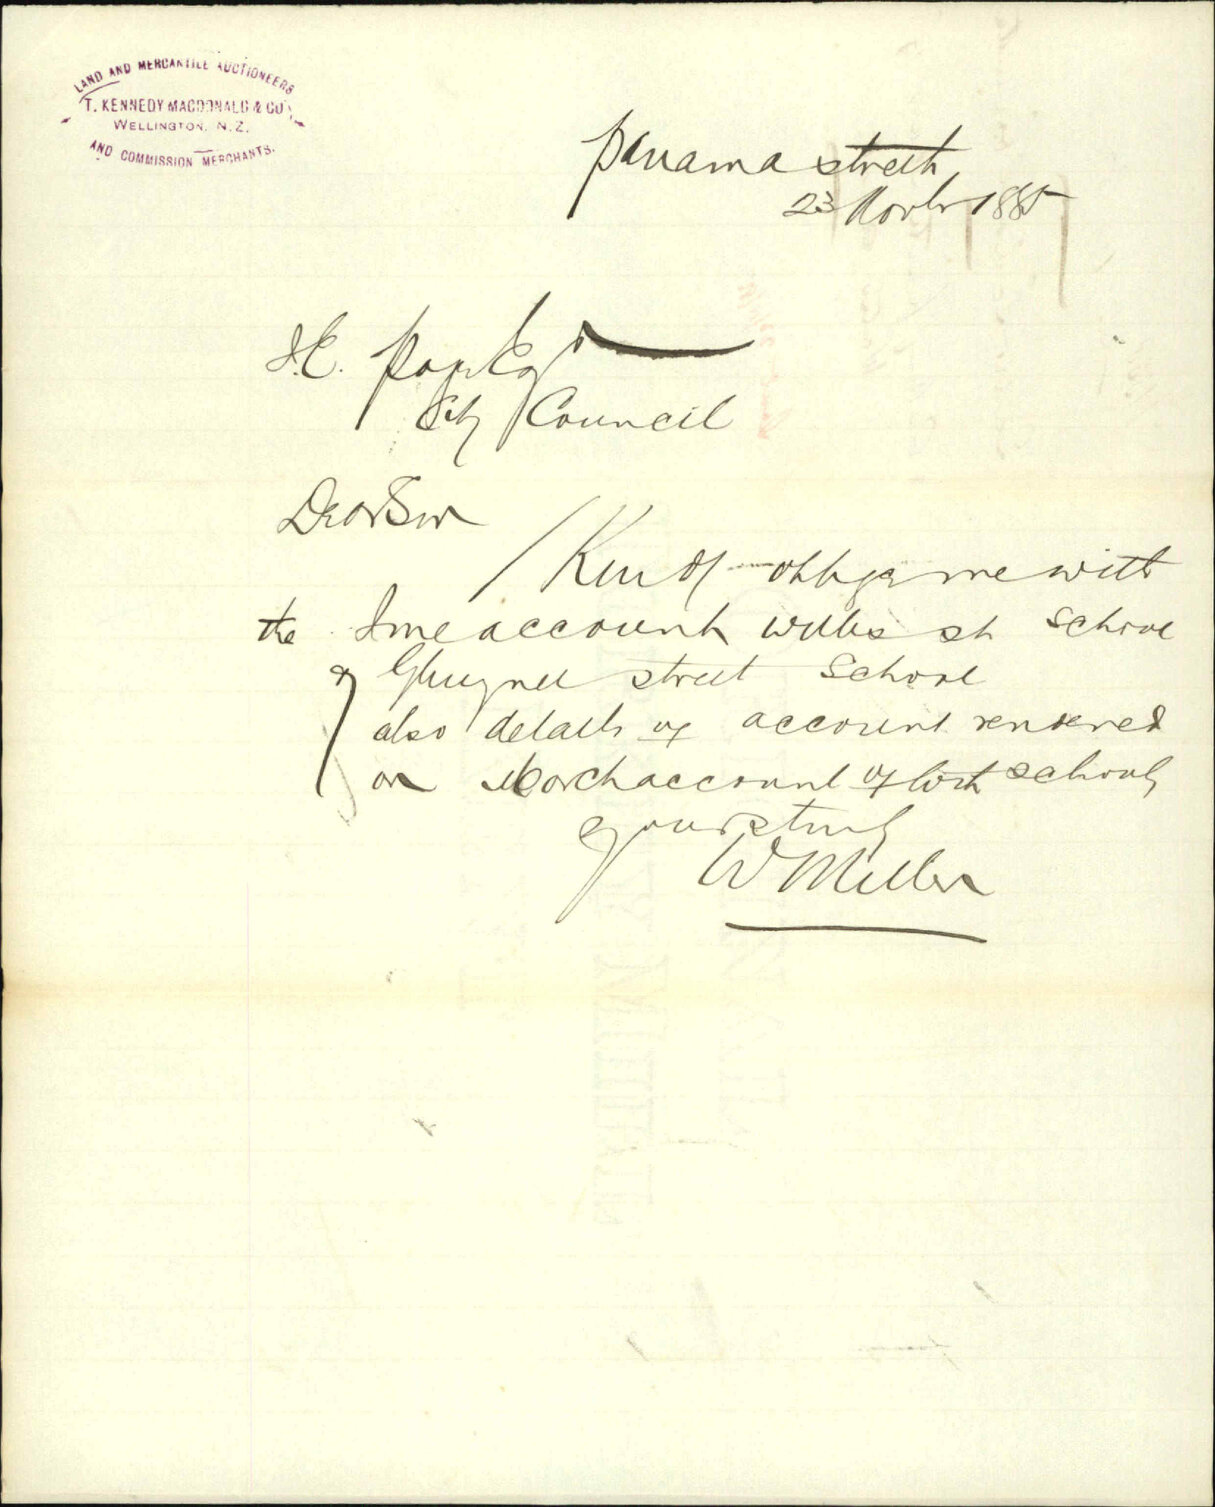 LAND AND MERCANTILE AUCTIONEERS
T. KENNEDY MACDONALD & CO
WELLINGTON. N.Z.
AND COMMISSION MERCHANTS.
Panama street
23 Novbr 1885
City Council
Dear Sir
Kindly oblige me with
the account Willis st School
& Ghuznee street School
also details of account rendered
on March account of both schools
yours truly
W Miller